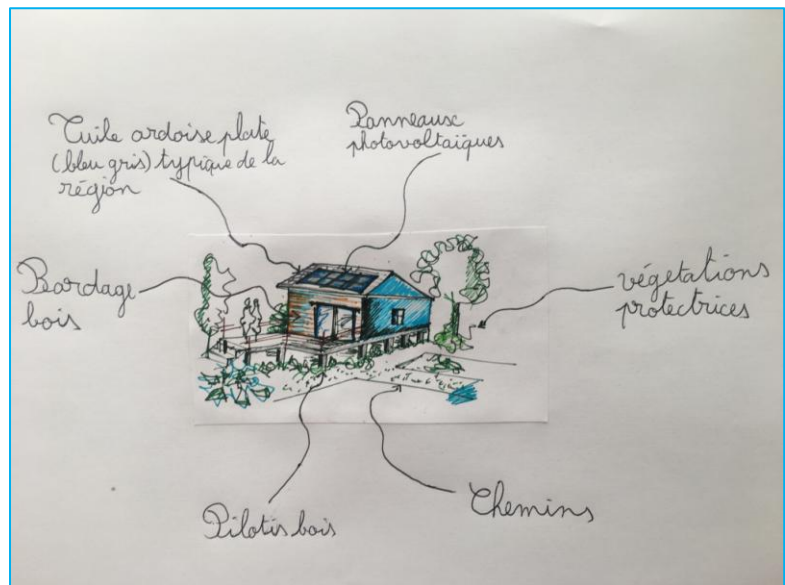 Tuile ardoise plate
(bleu gris) typique de la
région
Panneaux
photovoltaïques
Bardage
bois
végétations
protectrices
Pilotis bois
Chemins